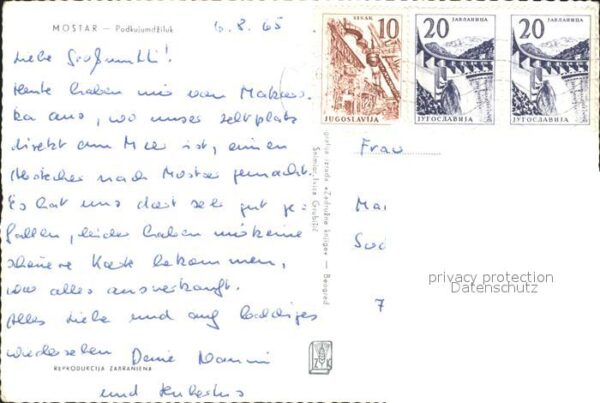 MOSTAR — Podkujumdžiluk
6.8.65
Liebe Großmutti!
Heute haben wir von Makars-
ka aus, wo unser Zeltplatz
direkt am Meer ist, einen
Abstecher nach Mostar gemacht.
Es hat uns dort sehr gut ge-
fallen, leider haben wir keine
schönere Karte bekommen,
war alles ausverkauft.
Alles Liebe und auf baldiges
Wiedersehen Deine
und Hubertus
REPRODUKCIJA ZABRANJENA
SISAK
10
JUGOSLAVIJA
ЈАБЛАНИЦА
20
ЈУГОСЛАВИЈА
ЈАБЛАНИЦА
20
ЈУГОСЛАВИЈА
grafička izrada »Zadružna knjiga« — Beograd
Snimio: Ivica Grubišić
Frau
Ma
7
privacy protection
Datenschutz